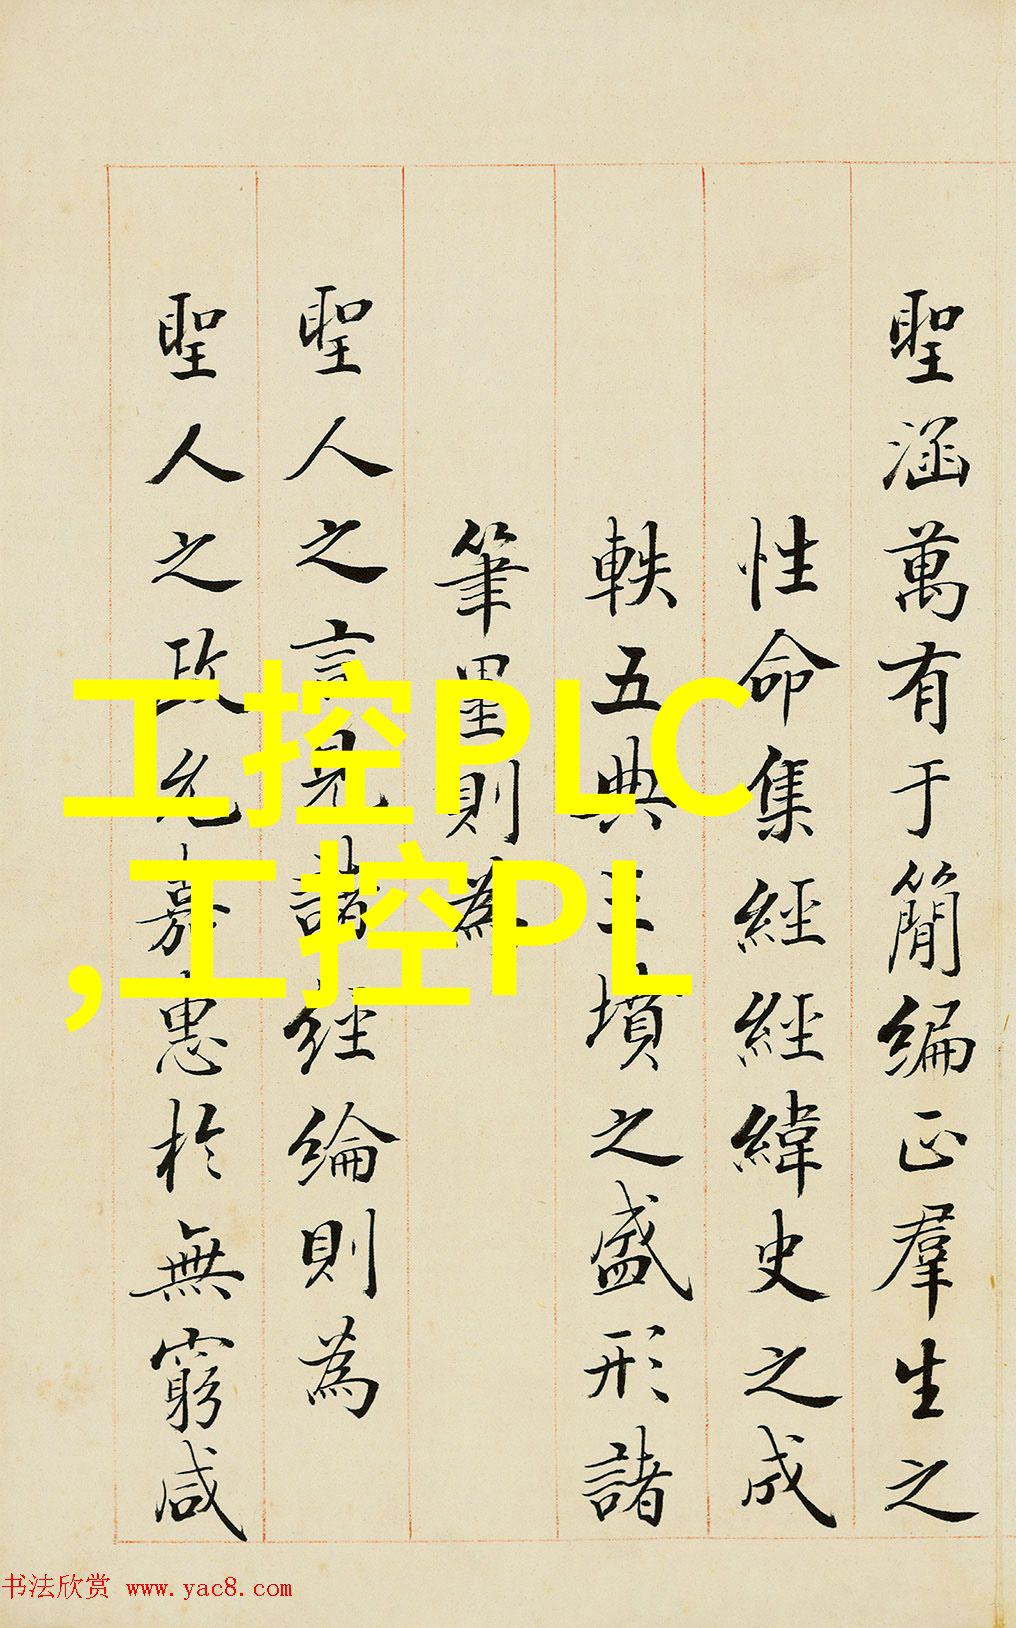 聖涵萬有于簡編正羣生之
性命集經經緯史之成
軼五典三墳之盛形諸
筆墨則為
聖人之言見諸經綸則為
聖人之政允嘉惠於無窮咸
工控PLC
,工控PL
书法欣赏 www.yac8.com